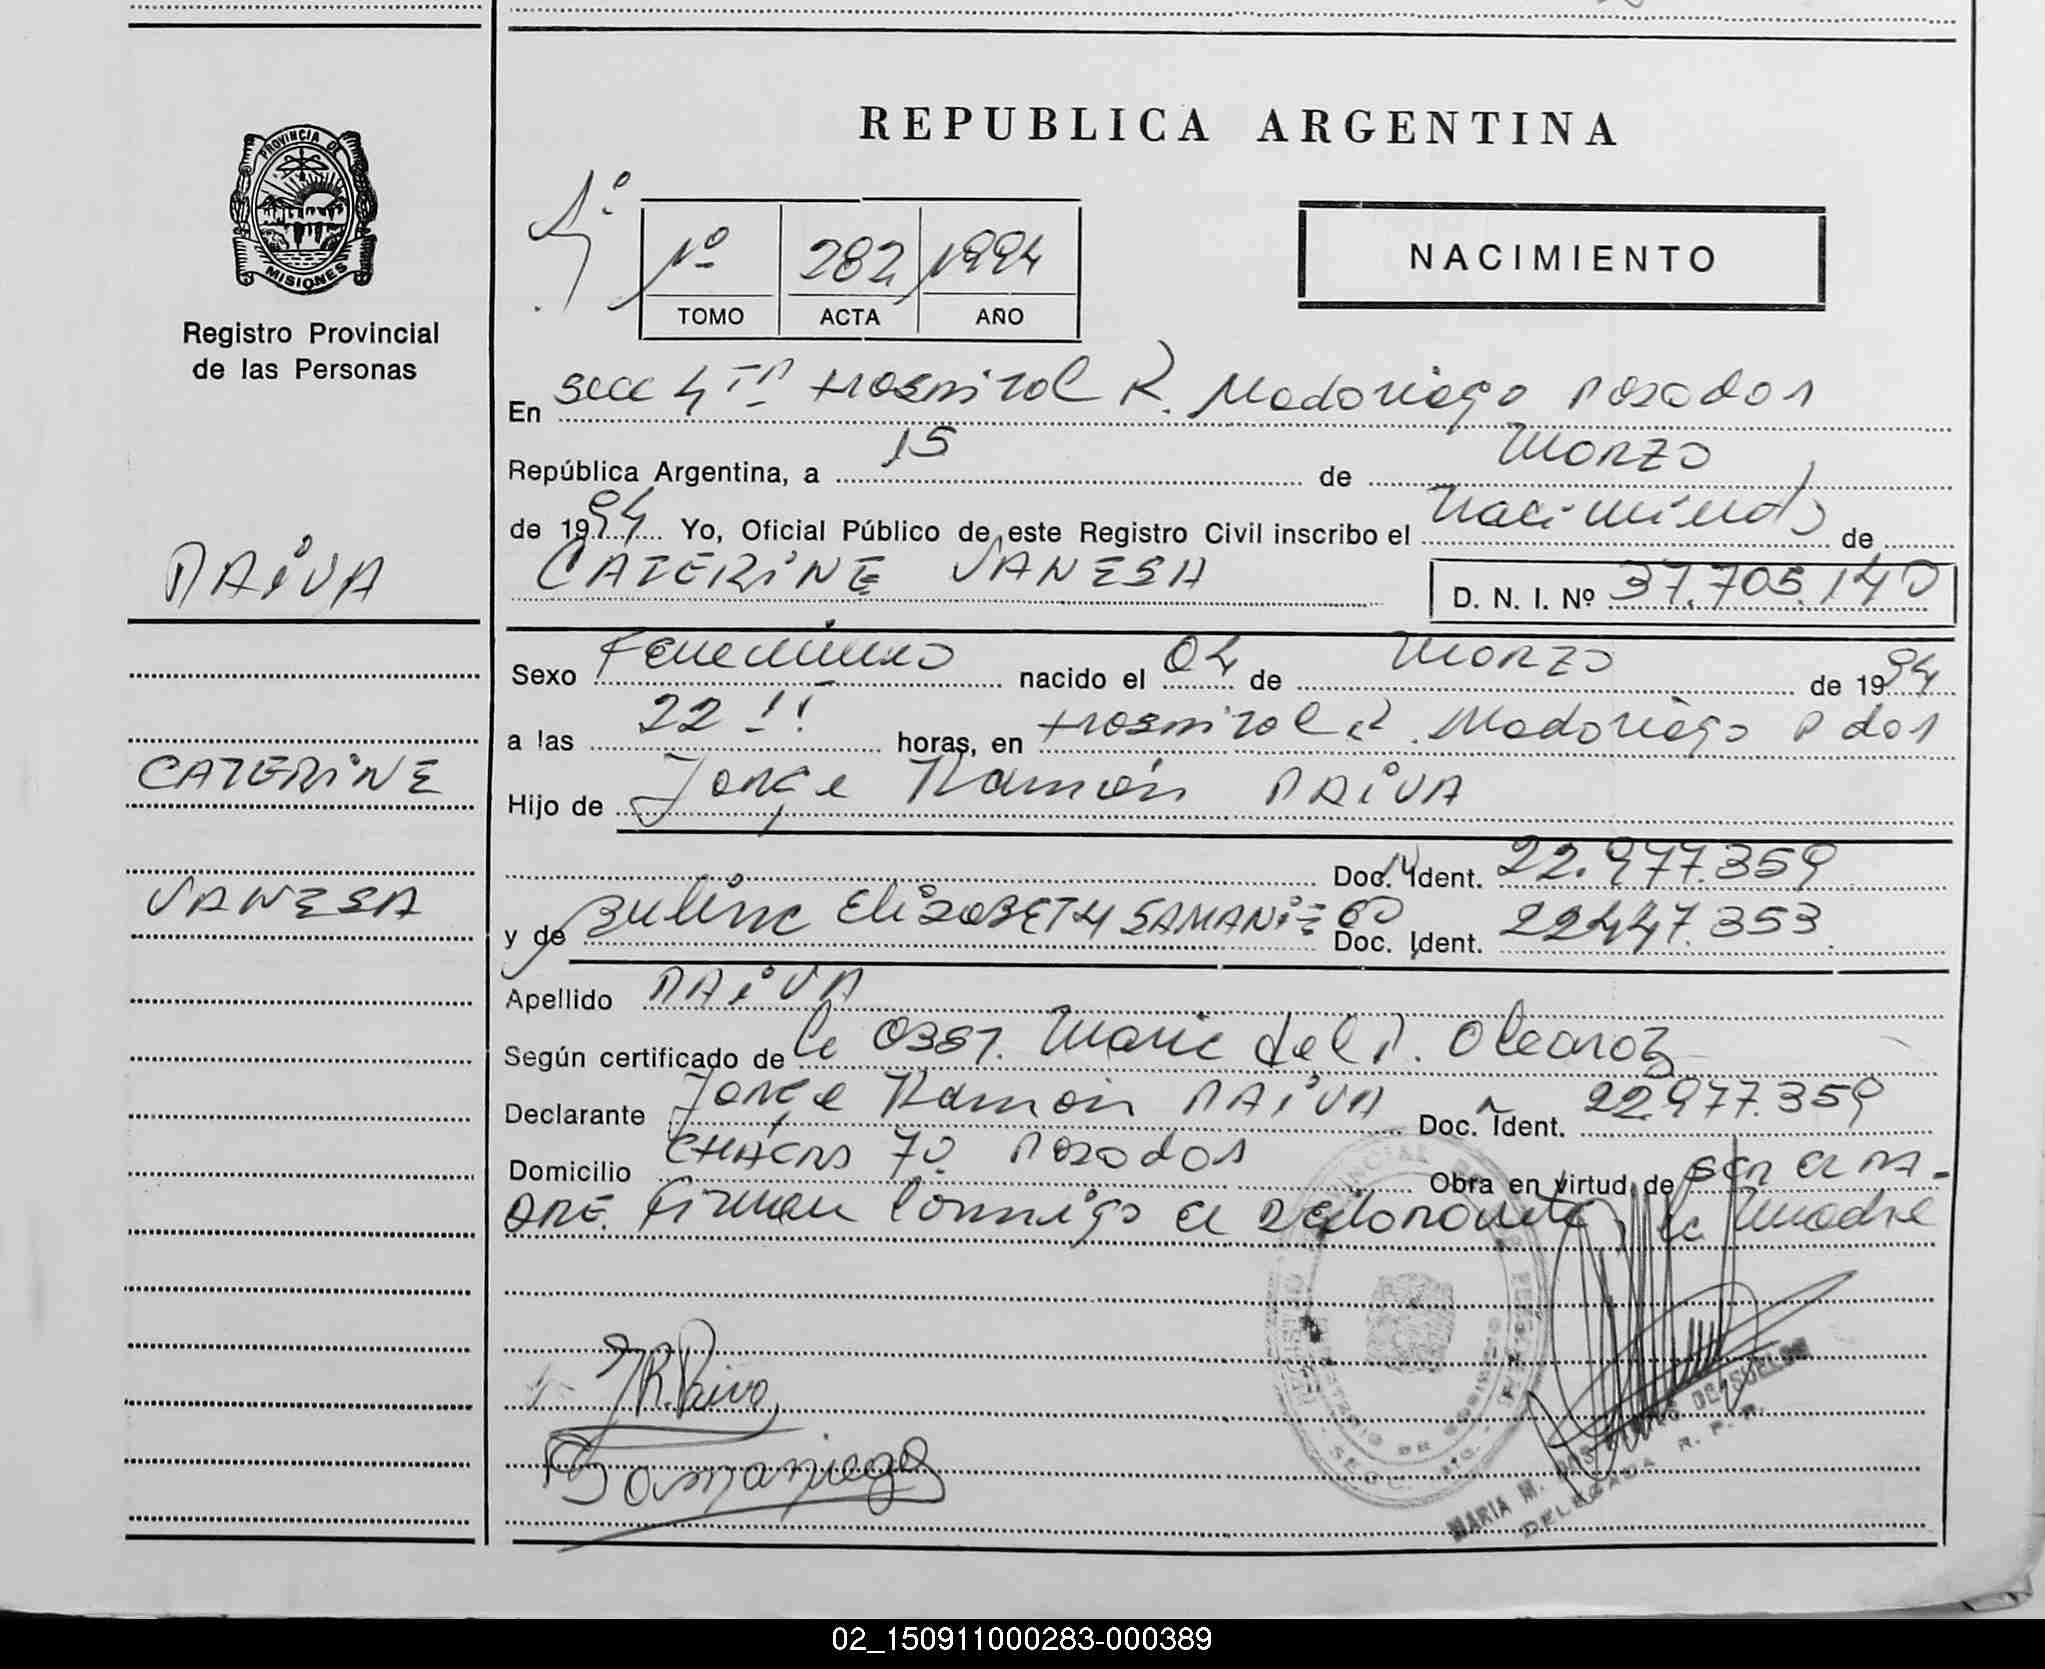 REPUBLICA ARGENTINA
PROVINCIA DE
MISIONES
Registro Provincial
de las Personas
Nº 282 1994
TOMO ACTA AÑO
NACIMIENTO
En Secc 4ta Hospital R. Madariaga Posadas
República Argentina, a 15 de Marzo
de 1994 Yo, Oficial Público de este Registro Civil inscribo el Nacimiento de
CATERINE VANESA D. N. I. Nº 37.705.140
PAIVA
Sexo Femenino nacido el 04 de Marzo de 1994
a las 22 horas, en Hospital R. Madariaga Pdas
CATERINE
Hijo de Jorge Ramón PAIVA
Doc. Ident. 22.977.359
VANESA
y de Zulma ElizaBETH SAMANIEGO Doc. Ident. 22447.353
Apellido PAIVA
Según certificado de la Obst. Maria del P. Olearoz
Declarante Jorge Ramón PAIVA Doc. Ident. 22.977.359
Domicilio CHACRA 70 Posadas Obra en virtud de ser el PA-
DRE. Firman conmigo el declarante, la madre
JR.Paiva
Samaniego
MARIA M.
DELEGADA
R. P. P.
02_150911000283-000389